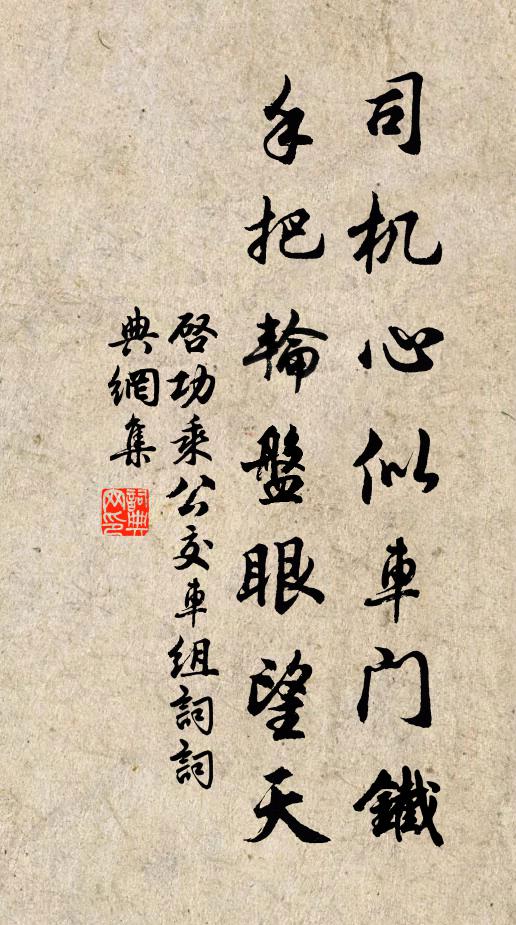 司机心似車门鐵
手把輪盤眼望天
啓功乘公交車组詞詞
典網集
詞典网印